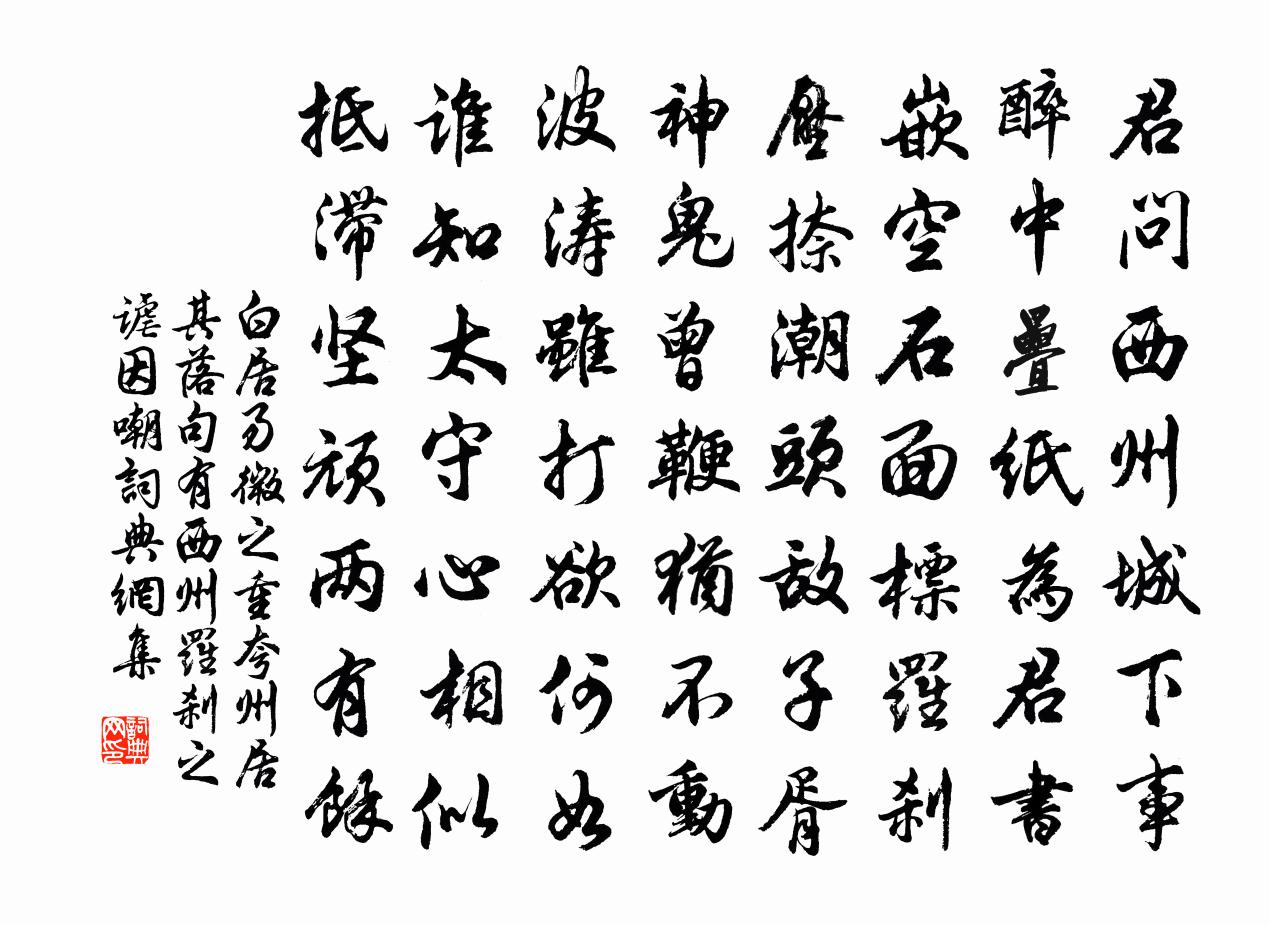 君問西州城下事
醉中疊紙為君書
嵌空石面標羅刹
壓捺潮頭敌子胥
神鬼曾鞭猶不動
波涛雖打欲何如
誰知太守心相似
抵滯坚頑两有餘
白居易微之重夸州居
其落句有西州羅刹之
謔因嘲詞典網集
詞典网印